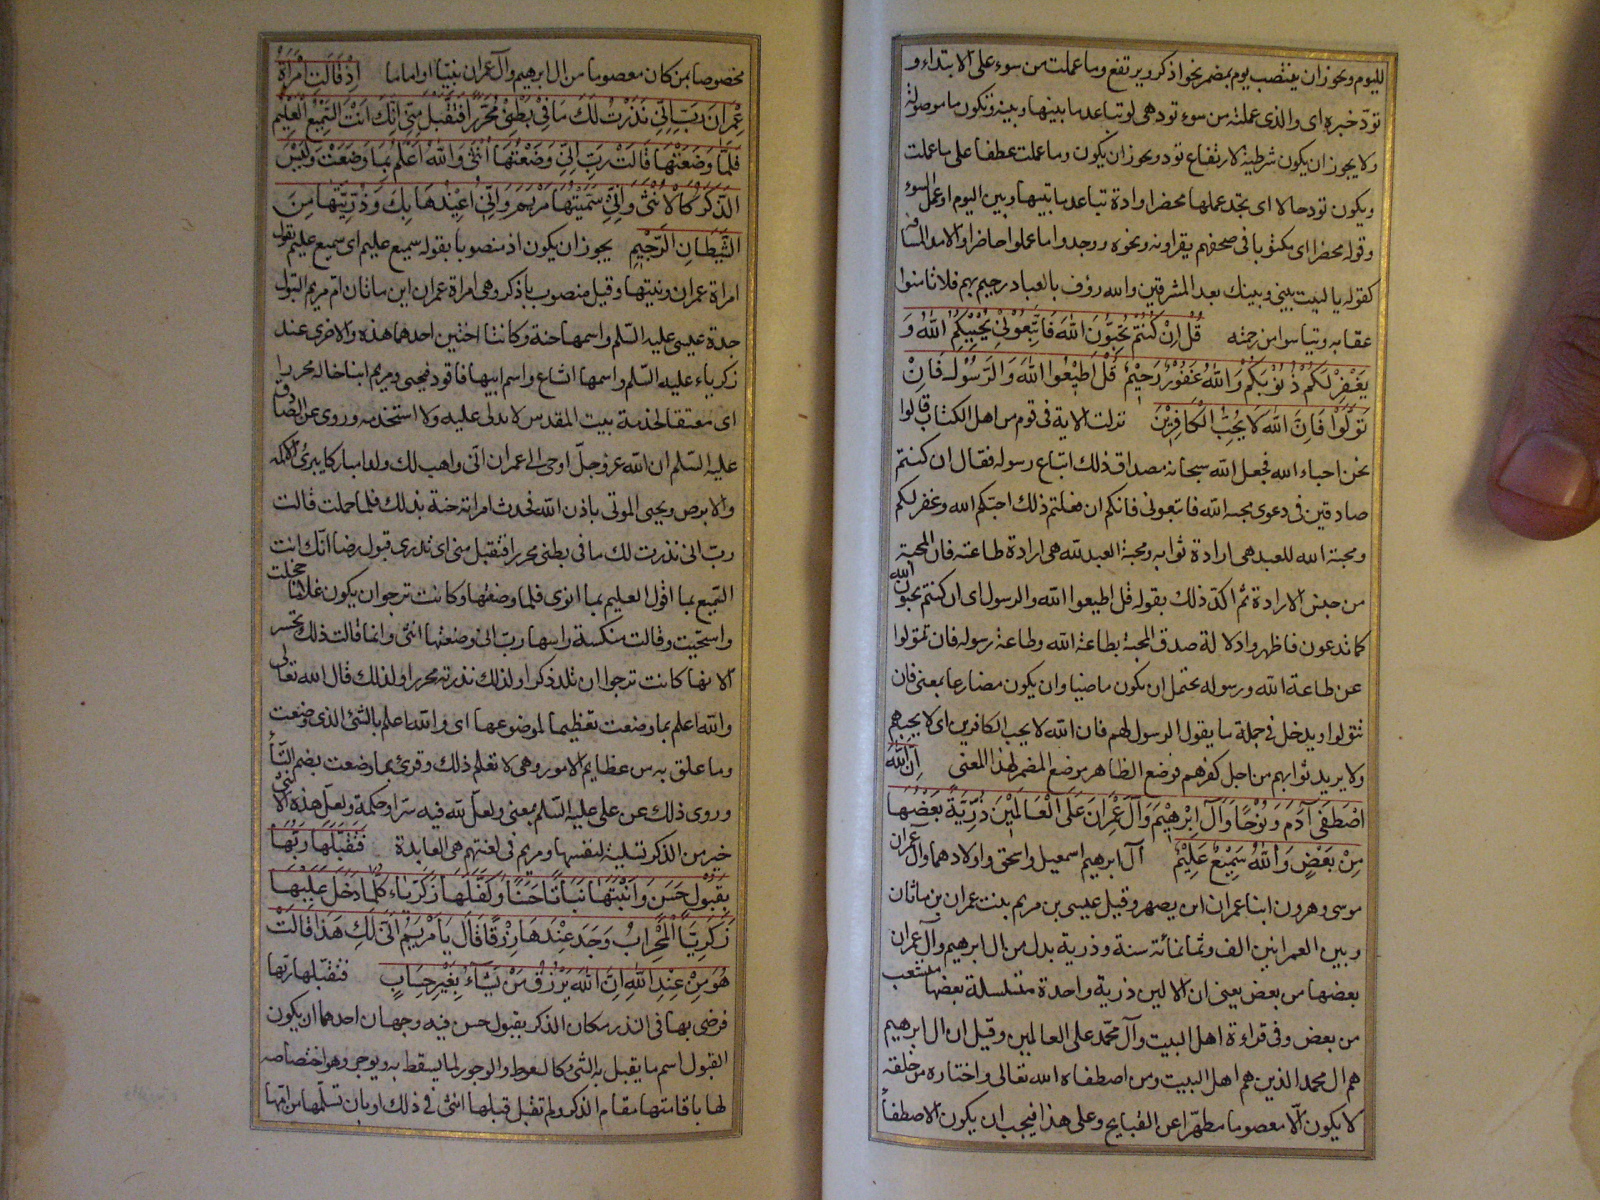 لليوم ويجوز ان ينتصب يوم بمضمر نحو اذكر ويرتفع وما عملت من سوء على الابتداء و
تودّ خبره اى والذى عملته من سوء تود هى لو تباعد ما بينها وبينه وتكون ما موصولة
ولا يجوز ان يكون شرطية لارتفاع تود ويجوز ان يكون وما عملت عطفا على ما عملت
ويكون تود حالا اى تجد عملها محضرا وادة تباعد ما بينها وبين اليوم او عمل السوء
وقوله محضرا اى مكتوبا فى صحفهم يقرأونه ونحوه ووجدوا ما عملوا حاضرا والامد المسافة
كقوله يا ليت بينى وبينك بعد المشرقين والله رؤف بالعباد رحيم بهم فلا تامنوا
عقابه وتياسوا من رحمته قُل اِن كُنتُم تُحِبُّونَ اللهَ فَاتَّبِعُونِى يُحْبِبْكُمُ اللهُ وَ
يَغْفِرْ لَكُمْ ذُنُوبَكُمْ وَاللهُ غَفُورٌ رَحِيْمٌ قُلْ اَطِيْعُوا اللهَ وَالرَّسُوْلَ فَاِنْ
تَوَلَّوْا فَاِنَّ اللهَ لَا يُحِبُّ الْكَافِرِيْنَ نزلت الاية فى قوم من اهل الكتاب قالوا
نحن احباء الله فجعل الله سبحانه مصداق ذلك اتباع رسوله فقال ان كنتم
صادقين فى دعوى محبة الله فاتبعونى فانكم ان فعلتم ذلك احبكم الله وغفر لكم
ومحبة الله للعبد هى ارادة ثوابه ومحبة العبد لله هى ارادة طاعته فان المحبة
من جنس الارادة ثم اكد ذلك بقوله قل اطيعوا الله والرسول اى ان كنتم تحبون الله
كما تدعون فاظهروا دلالة صدق المحبة بطاعة الله وطاعة رسوله فان تولوا
عن طاعة الله ورسوله يحتمل ان يكون ماضيا وان يكون مضارعا بمعنى فان
تتولوا ويدخل فى جملة ما يقول الرسول لهم فان الله لا يحب الكافرين اى لا يحبهم
ولا يريد ثوابهم من اجل كفرهم فوضع الظاهر موضع المضمر لهذا المعنى اِنَّ اللهَ
اصْطَفَى آدَمَ وَنُوْحًا وَآلَ اِبْرٰهِيْمَ وَآلَ عِمْرَانَ عَلَى الْعَالَمِيْنَ ذُرِّيَّةً بَعْضُهَا
مِنْ بَعْضٍ وَاللهُ سَمِيْعٌ عَلِيْمٌ آل ابرهيم اسمعيل واسحق واولادهما وآل عمران
موسى وهرون ابنا عمران ابن يصهر وقيل عيسى بن مريم بنت عمران بن ماثان
وبين العمرانين الف وثمانمائة سنة وذرية بدل من ال ابرهيم وآل عمران
بعضها من بعض يعنى ان الالين ذرية واحدة متسلسلة بعضها متشعب
من بعض وفى قراءة اهل البيت وآل محمّد على العالمين وقيل ان ال ابرهيم
هم ال محمد الذين هم اهل البيت ومن اصطفاه الله تعالى واختاره من خلقه
لا يكون الّا معصوما مطهّرا عن القبايح وعلى هذا فيجب ان يكون الاصطفاء
مخصوصا بمن كان معصوما من ال ابرهيم وآل عمران نبيّا او اماما اِذْ قَالَتِ امْرَاَةُ
عِمْرَانَ رَبِّ اِنِّى نَذَرْتُ لَكَ مَا فِىْ بَطْنِىْ مُحَرَّرًا فَتَقَبَّلْ مِنِّى اِنَّكَ اَنْتَ السَّمِيْعُ الْعَلِيْمُ
فَلَمَّا وَضَعَتْهَا قَالَتْ رَبِّ اِنِّى وَضَعْتُهَا اُنْثٰى وَاللهُ اَعْلَمُ بِمَا وَضَعَتْ وَلَيْسَ
الذَّكَرُ كَالْاُنْثٰى وَاِنِّى سَمَّيْتُهَا مَرْيَمَ وَاِنِّى اُعِيْذُهَا بِكَ وَذُرِّيَّتَهَا مِنَ
الشَّيْطَانِ الرَّجِيْمِ يجوز ان يكون اذ منصوبا بقوله سميع عليم اى سميع عليم بقول
امراة عمران ونيتها وقيل منصوب باذكر وهى امراة عمران ابن ماثان ام مريم البتول
جدة عيسى عليه السّلم واسمها حنة وكانتا اختين احدهما هذه والاخرى عند
زكرياء عليه السّلم واسمها اشاع واسم ابيها فاقود فيحيى ومريم ابنا خالة محررا
اى معتقا لخدمة بيت المقدس لا يدلى عليه ولا استخدمه وروى عن الصّادق
عليه السّلم ان الله عزوجلّ اوحى الى عمران انّى واهب لك ولدا مباركا يبرئ الاكمه
والابرص ويحيى الموتى باذن الله فحدث امراته حنة بذلك فلما حملت قالت
ربّ انى نذرت لك ما فى بطنى محررا فتقبل منى اى نذرى قبول رضا انّك انت
السّميع بما اقول العليم بما انوى فلما وضعتها وكانت ترجو ان يكون غلاما خجلت
واستحيت وقالت منكسة راسها ربّ انى وضعتها انثى وانما قالت ذلك تحسر
الانها كانت ترجوا ان تلد ذكرا ولذلك نذرته محررا ولذلك قال الله تعالى
والله اعلم بما وضعت تعظيما لموضوعها اى والله اعلم بالشئ الذى وضعت
وما علق به من عظايم الامور وهى لا تعلم ذلك وقرئ بما وضعت بضم التاء
وروى ذلك عن على عليه السّلم بمعنى ولعلّ لله فيه سرّا وحكمة ولعلّ هذه الانثى
خير من الذكر تسلية لنفسها ومريم فى لغتهم هى العابدة فَتَقَبَّلَهَا رَبُّهَا
بِقَبُوْلٍ حَسَنٍ وَاَنْبَتَهَا نَبَاتًا حَسَنًا وَكَفَّلَهَا زَكَرِيَّاءَ كُلَّمَا دَخَلَ عَلَيْهَا
زَكَرِيَّا الْمِحْرَابَ وَجَدَ عِنْدَهَا رِزْقًا قَالَ يَا مَرْيَمُ اَنّٰى لَكِ هَذَا قَالَتْ
هُوَ مِنْ عِنْدِ اللهِ اِنَّ اللهَ يَرْزُقُ مَنْ يَشَآءُ بِغَيْرِ حِسَابٍ فتقبّلها ربها
فرضى بها فى النذر مكان الذكر بقبول حسن فيه وجهان احدهما ان يكون
القبول اسم ما يقبل به الشئ كالسعوط والوجور لما يسعط به ويوجر وهو اختصاصه
لها باقامتها مقام الذكر ولم تقبل قبلها انثى فى ذلك او بان تسلّمها من امّها